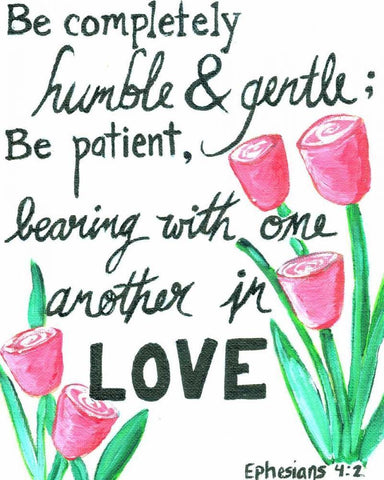 Be completely
humble & gentle;
Be patient,
bearing with one
another in
LOVE
Ephesians 4:2